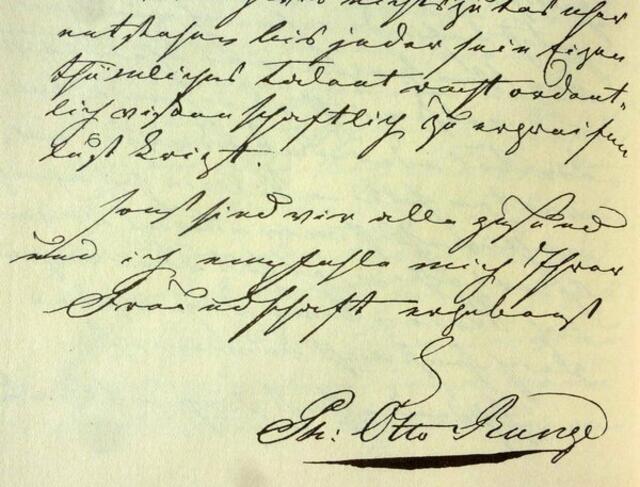 nichts zu das uhr
entstehen bis jeder sein Eigen
thümliches Talent recht ordent-
lich wissenschaftlich zu ergreifen
lust kriegt.
sonst sind wir alle gesund
und ich empfehle mich Ihrer
Freundschaft ergebenst
Ph: Otto Runge